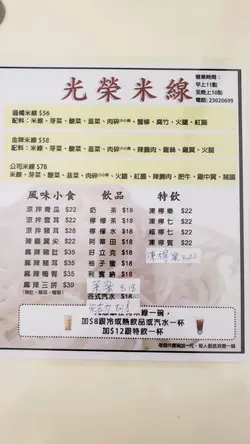 光榮米線
營業時間：
早上11點
至晚上10點
電話: 23020699
過橋米線 $56
配料：米線、芽菜、酸菜、韭菜、肉碎小小辣、蟹柳、腐竹、火腿、紅腸
金牌米線 $58
配料：米線、芽菜、酸菜、韭菜、肉碎小小辣、辣雞肉、雞絲、雞翼、火腿
公司米線 $78
米線、芽菜、酸菜、韭菜、肉碎小小辣、火腿、紅腸、辣雞肉、肥牛、雞中翼、豬腸
風味小食
涼拌青瓜 $22
涼拌雲耳 $22
涼拌腐竹 $28
辣雞翼尖 $22
麻辣豬耳 $35
麻辣豬肚 $35
麻辣鴨腎 $35
麻辣三拼 $39
飲品
奶茶 $18
檸檬茶 $18
檸檬水 $18
阿華田 $18
好立克 $18
柚子蜜 $18
利賓納 $18
菜蜜 $18
各式汽水
特飲
凍檸樂 $22
凍檸七 $22
鹹檸七 $22
凍檸賓 $22
凍檸蜜 $22
米線一碗，
加$8跟冷或熱飲品或汽水一杯
加$12跟特飲一杯